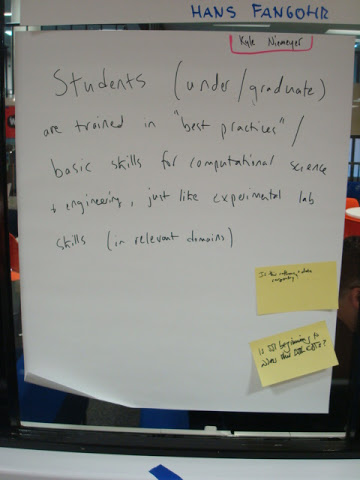 HANS FANGOHR
Kyle Niemeyer
Students (under/graduate)
are trained in "best practices" /
basic skills for computational science
+ engineering, just like experimental lab
skills (in relevant domains)
Is this software + data
beginning to